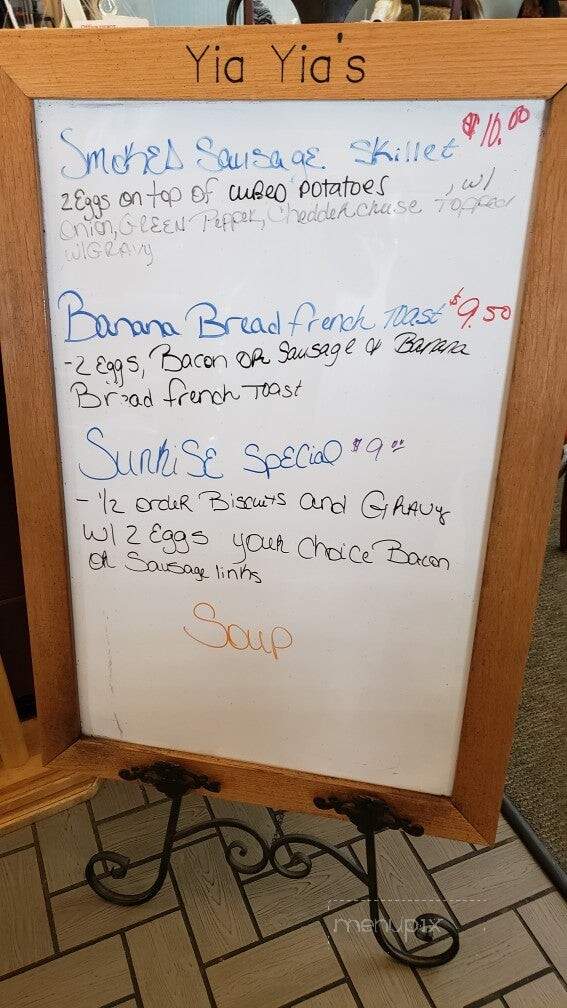 Yia Yia's
Smoked Sausage Skillet $10.00
2 Eggs on top of cubed potatoes , w/
onion, Green Pepper, Chedder chese Topped
w/Gravy
Banana Bread french Toast $9.50
-2 Eggs, Bacon or Sausage & Banana
Bread french Toast
Sunrise Special $9.00
- 1/2 order Biscuits and Gravy
w/ 2 Eggs your Choice Bacon
or Sausage links
Soup
menupix